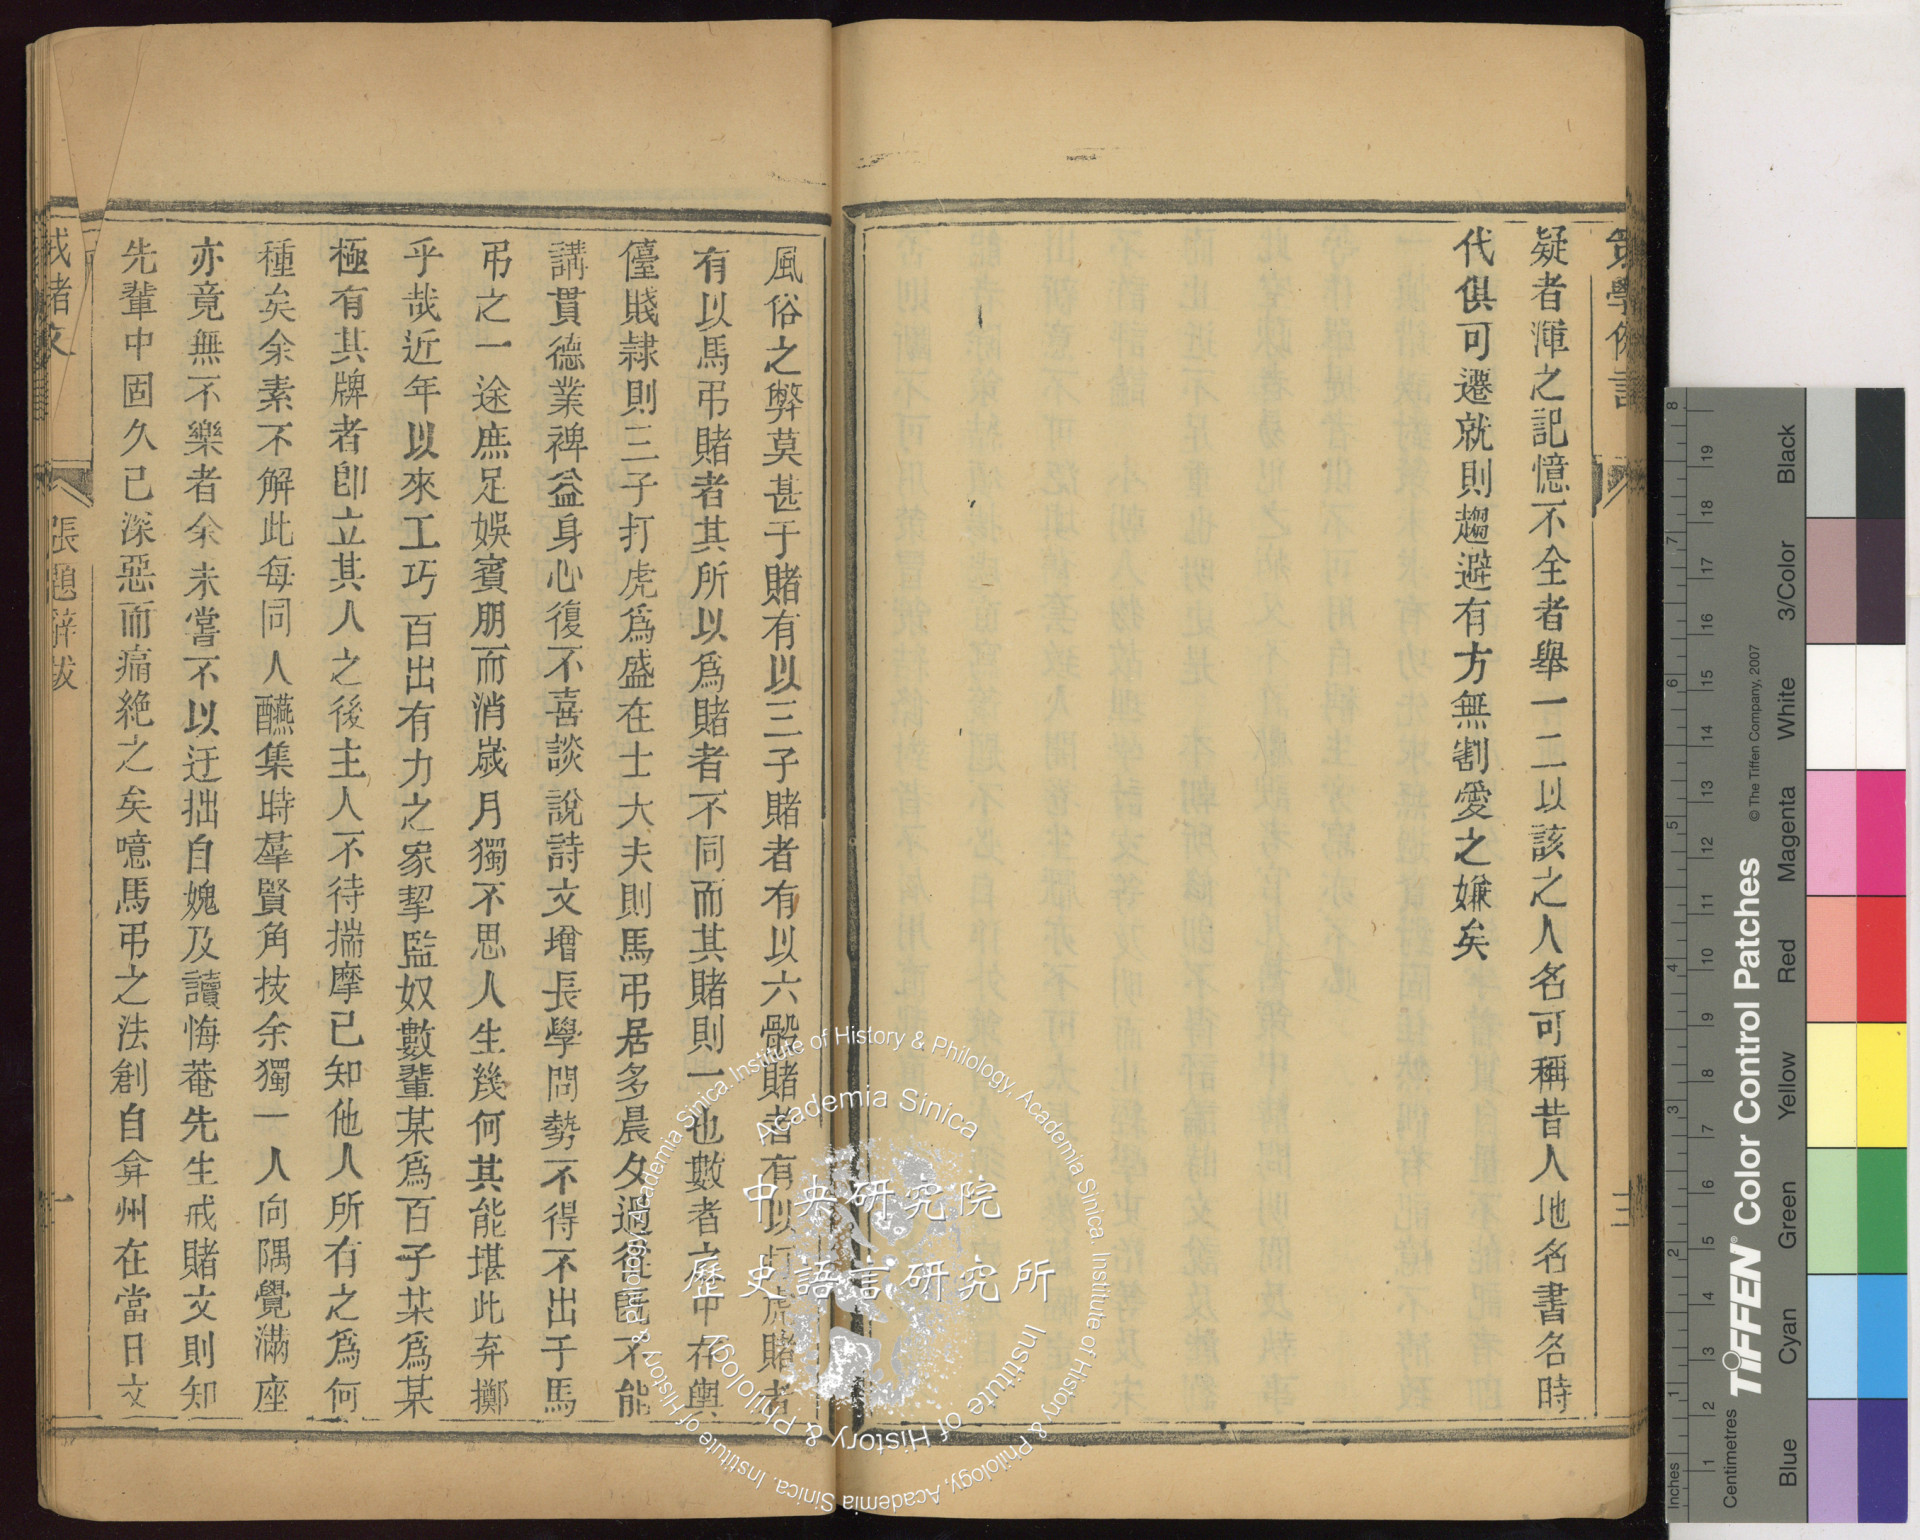 疑者渾之記憶不全者舉一二以該之人名可稱昔人地名書名時
代俱可遷就則趨避有方無割愛之嫌矣
風俗之弊莫甚于賭有以三子賭者有以六骰賭者有以打虎賭者
有以馬弔賭者其所以爲賭者不同而其賭則一也數者之中在輿
儓賤隷則三子打虎爲盛在士大夫則馬弔居多晨夕過從旣不能
講貫德業裨益身心復不喜談說詩文增長學問勢不得不出于馬
弔之一途庶足娛賓朋而消歲月獨不思人生幾何其能堪此弃擲
乎哉近年以來工巧百出有力之家挈監奴數輩某爲百子某爲某
極有其牌者卽立其人之後主人不待揣摩已知他人所有之爲何
種矣余素不解此每同人醼集時羣賢角技余獨一人向隅覺滿座
亦竟無不樂者余未嘗不以迂拙自媿及讀悔菴先生戒賭文則知
先輩中固久已深惡而痛絶之矣噫馬弔之法創自弇州在當日文
戒賭文
張題辭
一
中央研究院
歷史語言研究所
Academia Sinica
Institute of History & Philology
Inches
Centimetres
TIFFEN® Color Control Patches
© The Tiffen Company, 2007
Blue
Cyan
Green
Yellow
Red
Magenta
White
3/Color
Black